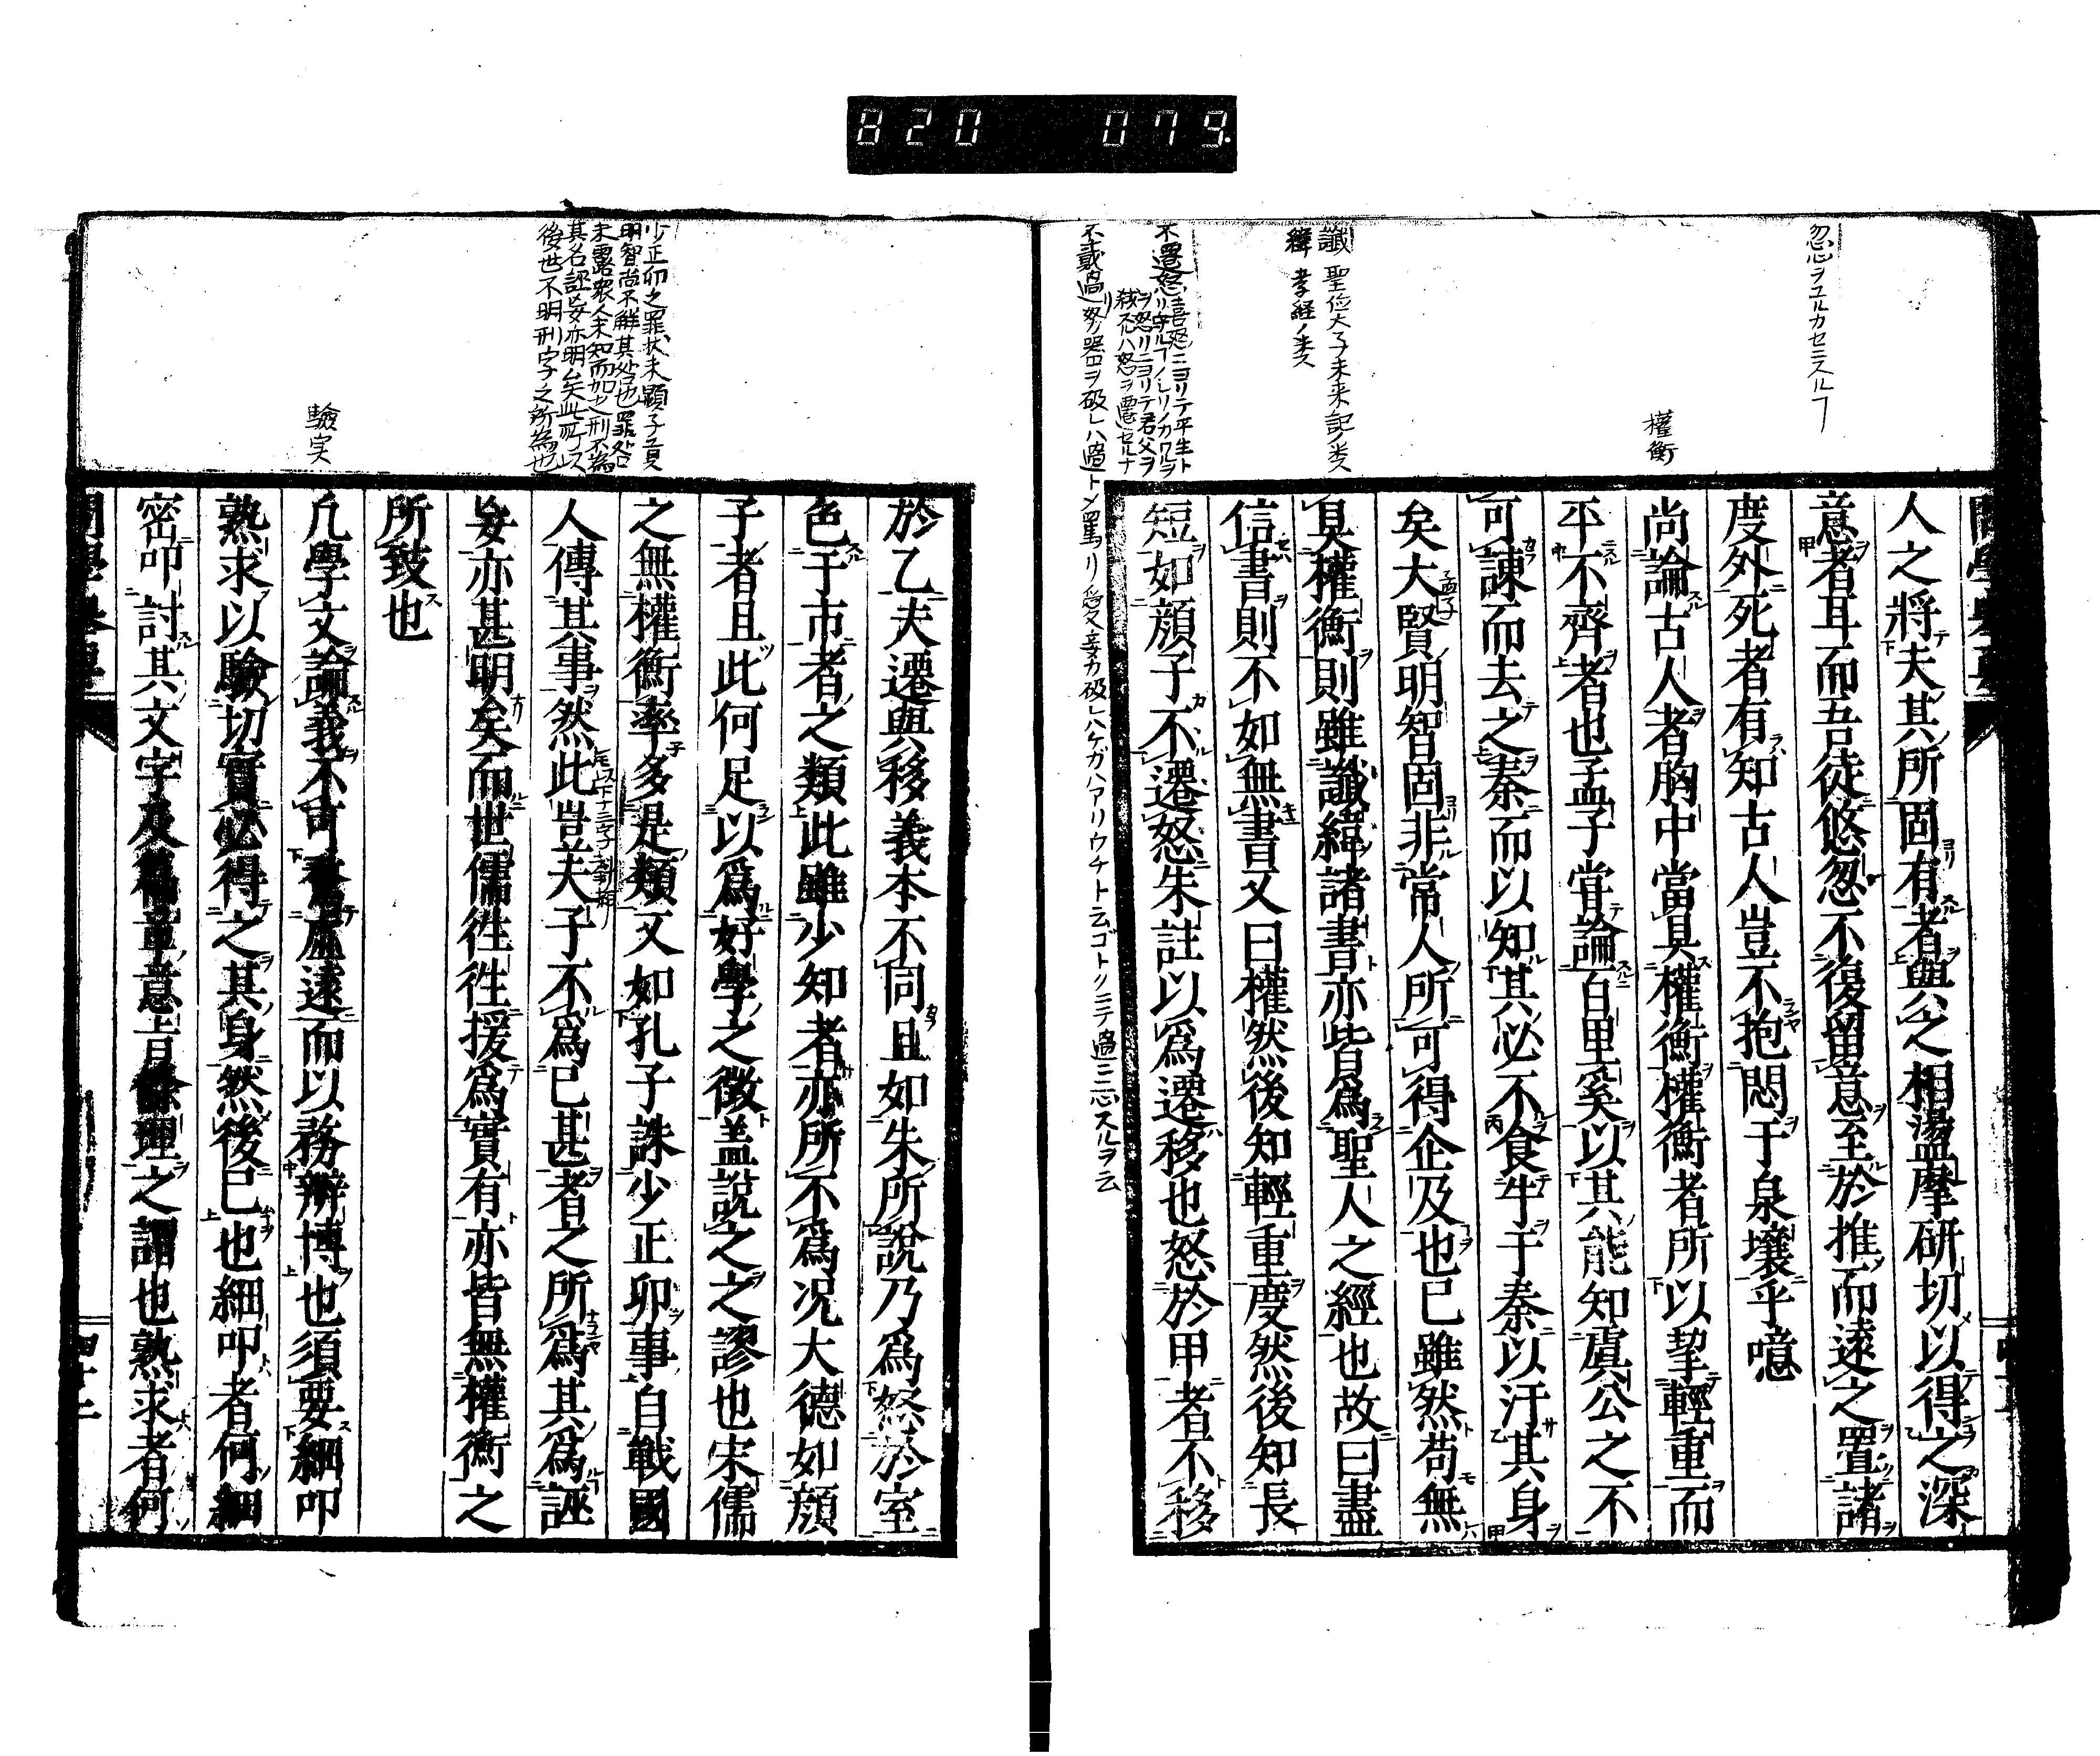 820 079
忽ヲユルカセニスルフ
權衡
讖 聖徳太子未来記ノ类
緯 孝経ノ类
人之將夫其所固有者與公之相盪摩研切以得之深
意者耳而吾徒悠忽不復留意至於推而遠之置諸
度外死者有知古人豈不抱悶于泉壤乎噫
尚論古人者胸中當具權衡權衡者所以挈輕重而
平不齊者也孟子甞論百里奚以其能知虞公之不
可諫而去之秦而以知其必不食牛于秦以汙其身
矣大賢明智固非常人所可得企及也已雖然苟無
具權衡則雖讖緯諸書亦皆爲聖人之經也故曰盡
信書則不如無書又曰權然後知輕重度然後知長
短如顔子不遷怒朱註以爲遷移也怒於甲者不移
少正卯之罪状未顯子貢
明智尚不解其咎也罪咎
未露衆人未知而加之刑不為
其名誣妄亦明矣此所以
後世不明刑字之所為也
驗実
於乙夫遷與移義本不同且如朱所說乃爲怒於室
色于市者之類此雖少知者亦所不爲况大德如顔
子者且此何足以爲好學之徴盖說之之謬也宋儒
之無權衡率多是類又如孔子誅少正卯事自戰國
人傳其事然此豈夫子不爲已甚者之所爲其爲誣
妄亦甚明矣而世儒徃徃援爲實有亦皆無權衡之
所致也
凡學文論義不可務爲虛遠而以務辯博也須要細叩
熟求以驗切實必得之其身然後已也細叩者何細
密叩討其文字及篇章意旨條理之謂也熟求者何